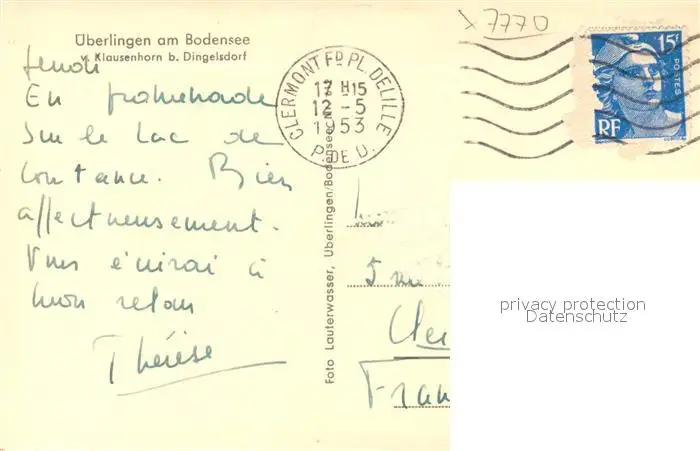 Überlingen am Bodensee
v. Klausenhorn b. Dingelsdorf
Jeudi
En promenade
sur le Lac de
Constance. Bien
affectueusement.
Vous écrirai à
mon retour
Thérèse
Foto Lauterwasser, Überlingen/Bodensee
CLERMONT FD PL. DELILLE
17 H15
12 - 5
1953
P. DE D.
x 7770
15F
POSTES
RF
5 rue
Cler
Fran
privacy protection
Datenschutz